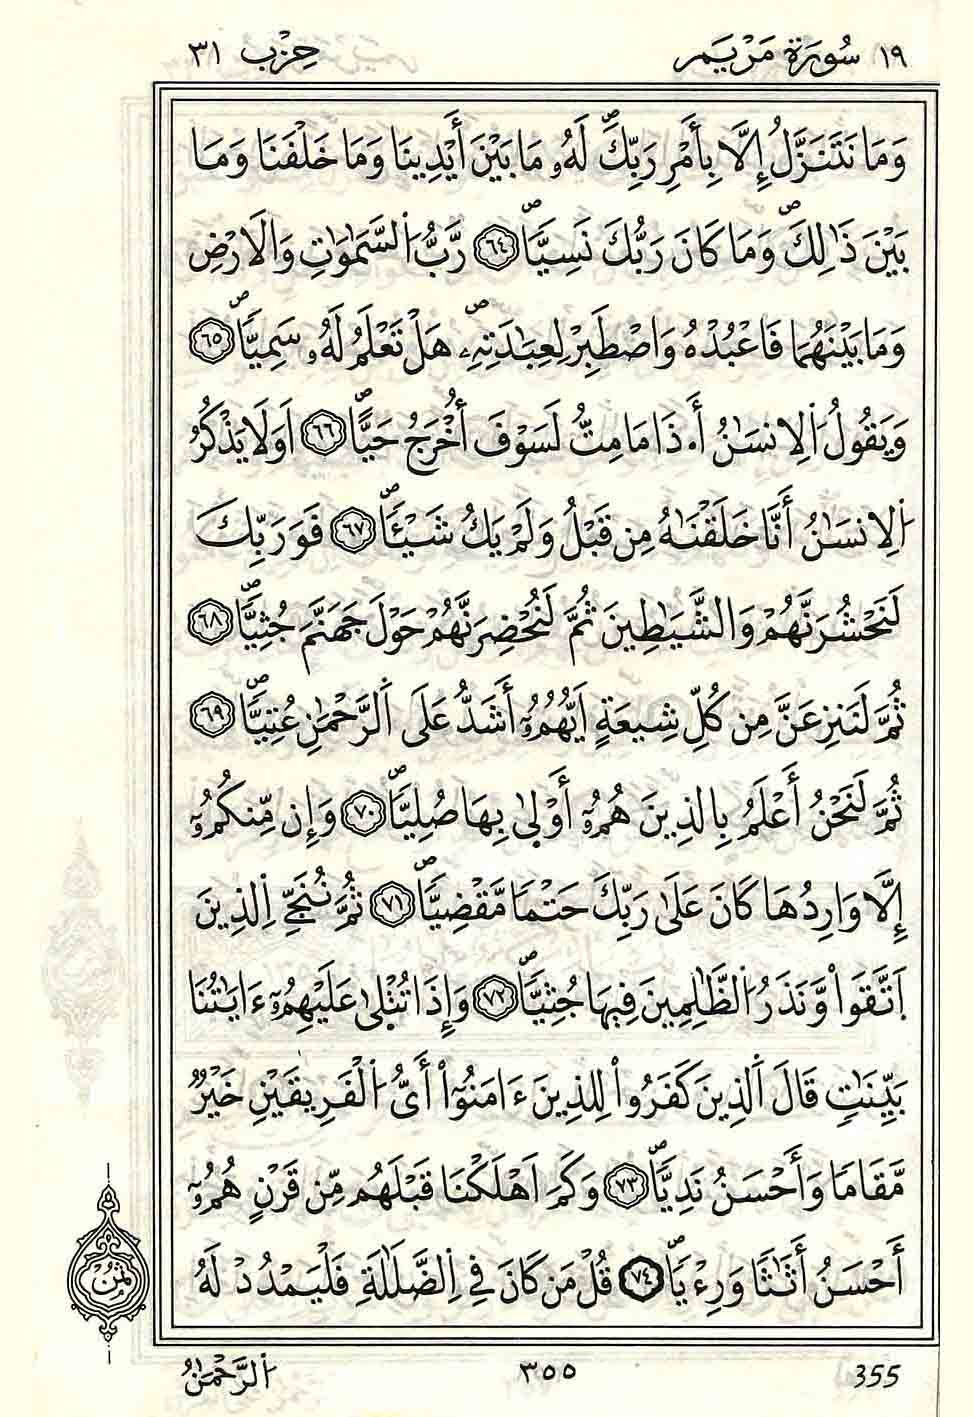 ١٩ سُورَة مَرْيَم حِزْب ٣١
وَمَا نَتَنَزَّلُ إِلَّا بِأَمْرِ رَبِّكَ لَهُۥ مَا بَيْنَ أَيْدِينَا وَمَا خَلْفَنَا وَمَا
بَيْنَ ذَٰلِكَ وَمَا كَانَ رَبُّكَ نَسِيًّا ٦٤ رَّبُّ اُ۬لسَّمَٰوَٰتِ وَالَارْضِ
وَمَا بَيْنَهُمَا فَاعْبُدْهُ وَاصْطَبِرْ لِعِبَٰدَتِهِۦ هَلْ تَعْلَمُ لَهُۥ سَمِيًّا ٦٥
وَيَقُولُ اُ۬لِانسَٰنُ أَ.ذَا مَا مِتُّ لَسَوْفَ أُخْرَجُ حَيًّا ٦٦ اَوَلَا يَذْكُرُ
اُ۬لِانسَٰنُ أَنَّا خَلَقْنَٰهُ مِن قَبْلُ وَلَمْ يَكُ شَيْـًٔا ٦٧ فَوَرَبِّكَ
لَنَحْشُرَنَّهُمْ وَالشَّيَٰطِينَ ثُمَّ لَنُحْضِرَنَّهُمْ حَوْلَ جَهَنَّمَ جُثِيًّا ٦٨
ثُمَّ لَنَنزِعَنَّ مِن كُلِّ شِيعَةٍ اَيُّهُمُۥٓ أَشَدُّ عَلَى اَ۬لرَّحْمَٰنِ عُتِيًّا ٦٩
ثُمَّ لَنَحْنُ أَعْلَمُ بِالذِينَ هُمُۥٓ أَوْلَىٰ بِهَا صُلِيًّا ٧٠ وَإِن مِّنكُمُۥٓ
إِلَّا وَارِدُهَا كَانَ عَلَىٰ رَبِّكَ حَتْمًا مَّقْضِيًّا ٧١ ثُمَّ نُنَجِّي اِ۬لذِينَ
اَ۪تَّقَواْ وَّنَذَرُ اُ۬لظَّٰلِمِينَ فِيهَا جُثِيًّا ٧٢ وَإِذَا تُتْلَىٰ عَلَيْهِمُۥٓ ءَايَٰتُنَا
بَيِّنَٰتٍ قَالَ اَ۬لذِينَ كَفَرُواْ لِلذِينَ ءَامَنُوٓاْ أَىُّ اُ۬لْفَرِيقَيْنِ خَيْرٌ
مَّقَامًا وَأَحْسَنُ نَدِيًّا ٧٣ وَكَمَ اَهْلَكْنَا قَبْلَهُم مِّن قَرْنٍ هُمُۥٓ
أَحْسَنُ أَثَٰثًا وَرِءْيًا ٧٤ قُلْ مَن كَانَ فِي اِ۬لضَّلَٰلَةِ فَلْيَمْدُدْ لَهُ
ثُمُن
اُ۬لرَّحْمَٰنُ ٣٥٥ 355